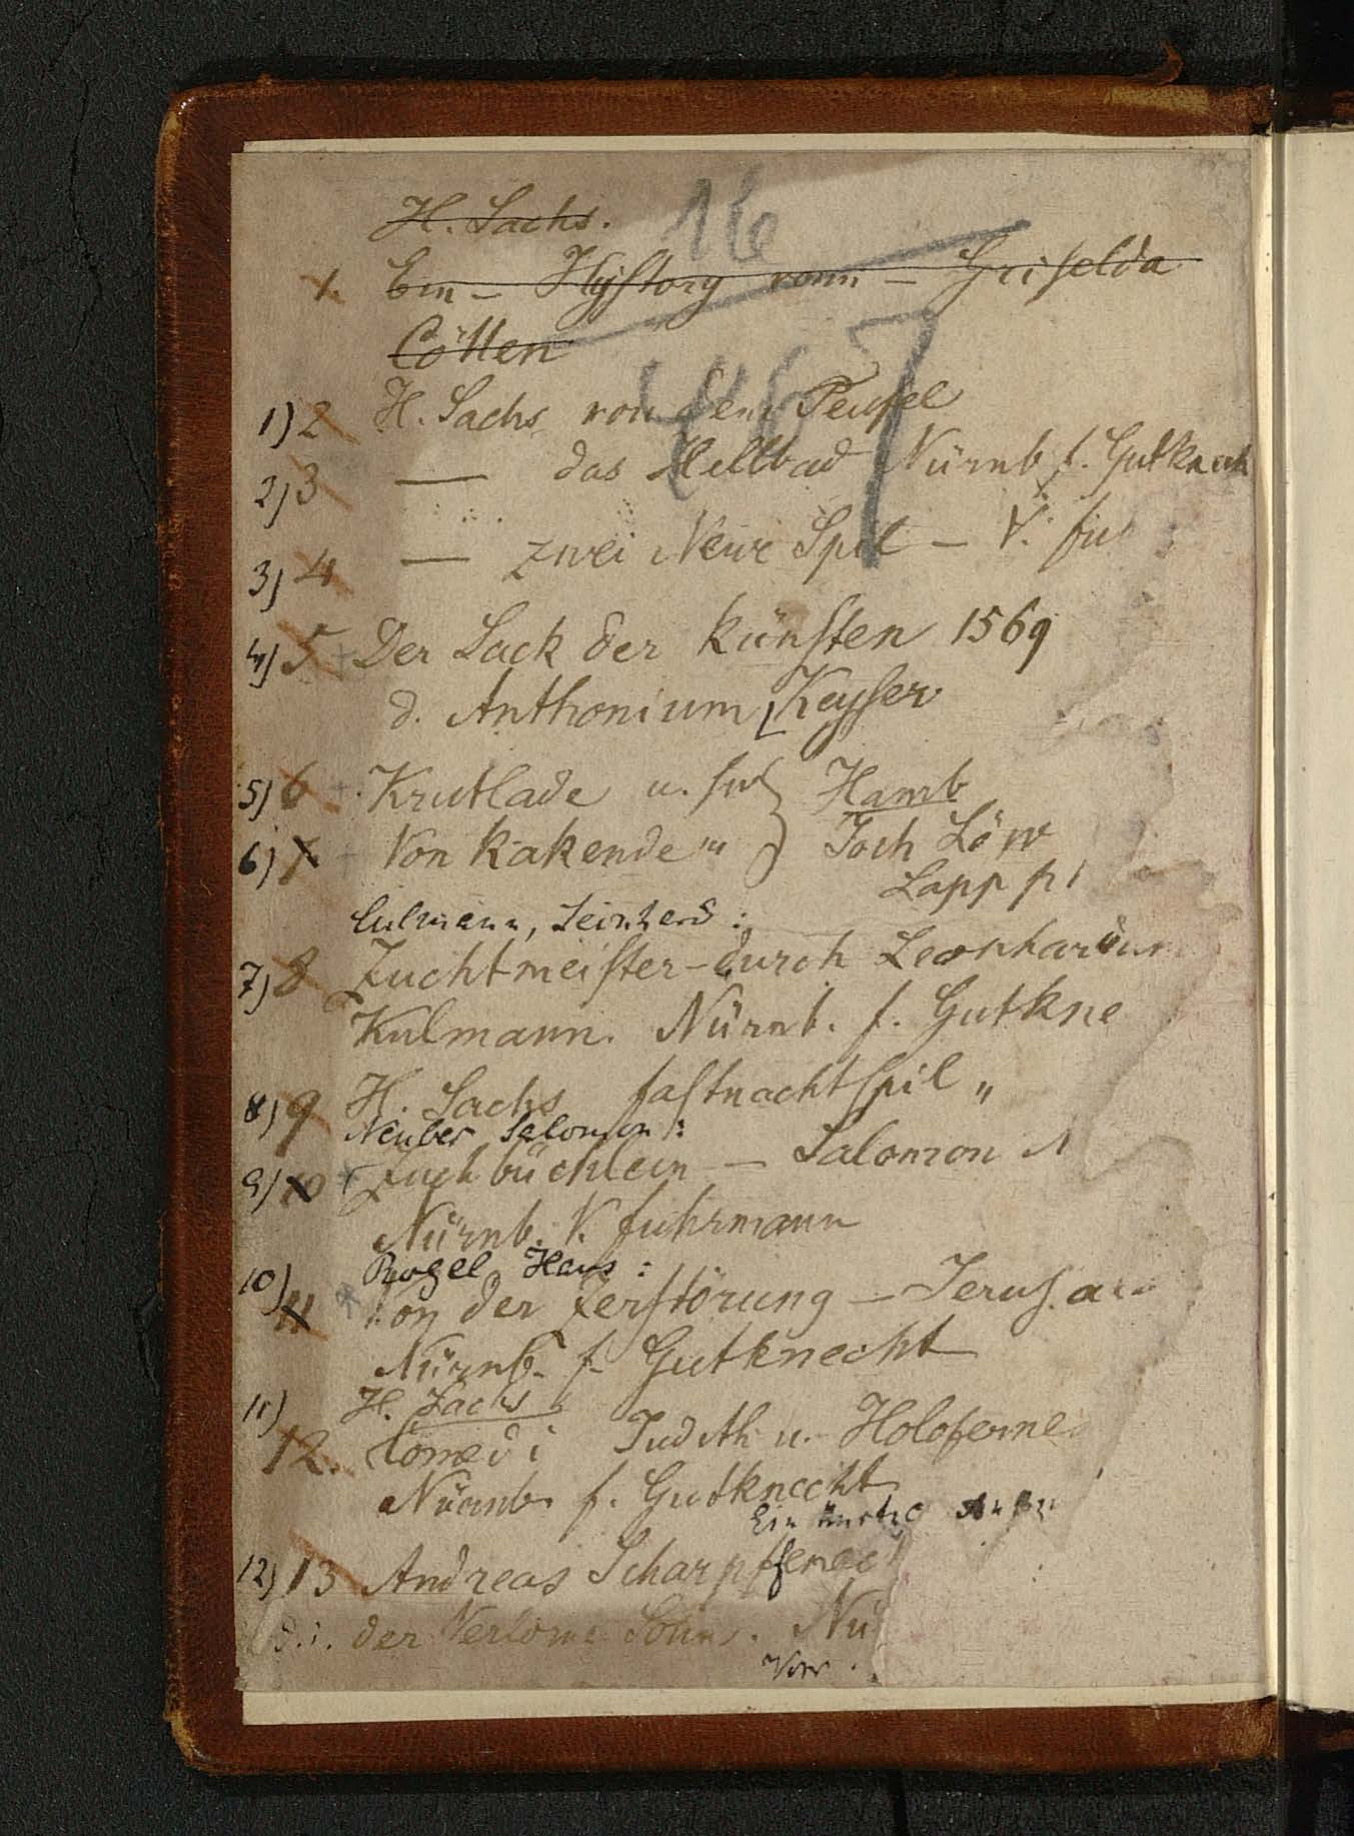 H. Sachs.
16
1. Ein – Hystory vonn – Griselda
Cöllen
1) 2 H. Sachs von dem Teufel
2) 3 — das Hellbad Nürnb f. Gutknech
3) 4 — zwei Neue Spil – V. fu
4) 5 Der Sack der Künsten 1569
d. Anthonium Keyser
5) 6 Krutlade u. Hamb
6) 7 Von Kakende " Joch Löw
Lapp
Culmann, Leinhard:
7) 8 Zuchtmeister – durch Leonhardum
Kulmann. Nürnb. f. Gutkne
8) 9 H. Sachs fastnachtspil "
Neuber Salomon:
9) 10 Zuchbüchlein – Salomon N
Nürnb. V. fuhrmann
Rogel Hans:
10) 11 Von der Zerstörung – Jerusa
Nürnb. f. Gutknecht
11) H. Sachs
12. Comedi Judith u. Holoferne
Nürnb. f. Gutknecht
Ein
12) 13 Andreas Scharpffenec
d. i. der Verlorne Sohn. Nü